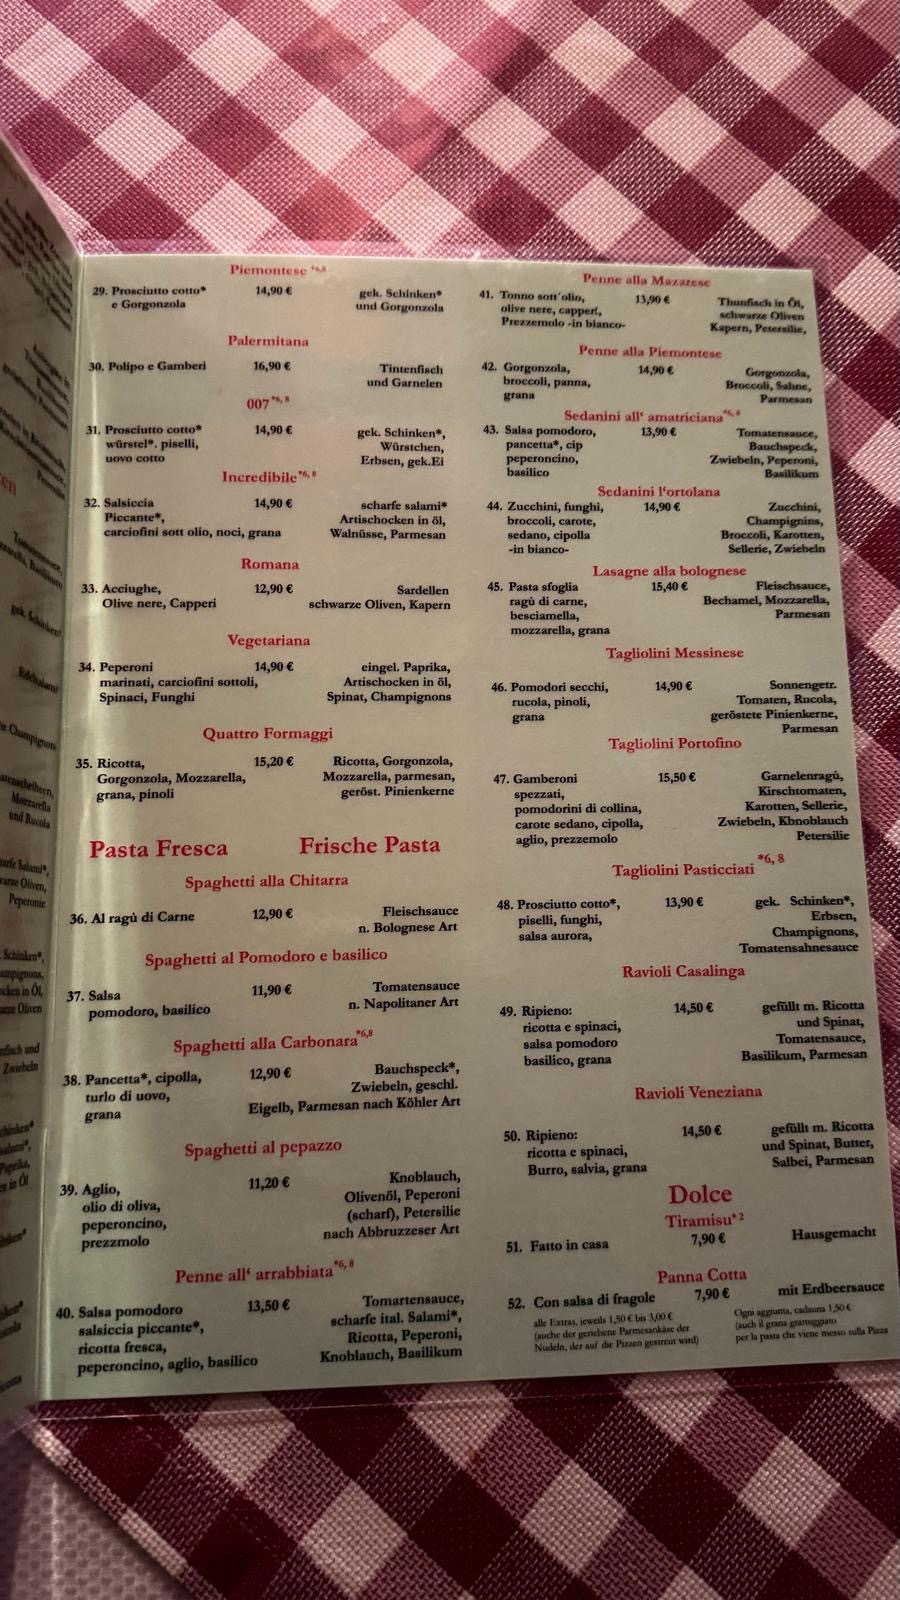 Piemontese *6,8
29. Prosciutto cotto* 14,90 € gek. Schinken*
e Gorgonzola und Gorgonzola
Palermitana
30. Polipo e Gamberi 16,90 € Tintenfisch
und Garnelen
007 *6, 8
31. Prosciutto cotto* 14,90 € gek. Schinken*,
würstel*. piselli, Würstchen,
uovo cotto Erbsen, gek.Ei
Incredibile *6, 8
32. Salsiccia 14,90 € scharfe salami*
Piccante*, Artischocken in öl,
carciofini sott olio, noci, grana Walnüsse, Parmesan
Romana
33. Acciughe, 12,90 € Sardellen
Olive nere, Capperi schwarze Oliven, Kapern
Vegetariana
34. Peperoni 14,90 € eingel. Paprika,
marinati, carciofini sottoli, Artischocken in öl,
Spinaci, Funghi Spinat, Champignons
Quattro Formaggi
35. Ricotta, 15,20 € Ricotta, Gorgonzola,
Gorgonzola, Mozzarella, Mozzarella, parmesan,
grana, pinoli geröst. Pinienkerne
Pasta Fresca Frische Pasta
Spaghetti alla Chitarra
36. Al ragù di Carne 12,90 € Fleischsauce
n. Bolognese Art
Spaghetti al Pomodoro e basilico
37. Salsa 11,90 € Tomatensauce
pomodoro, basilico n. Napolitaner Art
Spaghetti alla Carbonara *6,8
38. Pancetta*, cipolla, 12,90 € Bauchspeck*,
turlo di uovo, Zwiebeln, geschl.
grana Eigelb, Parmesan nach Köhler Art
Spaghetti al pepazzo
39. Aglio, 11,20 € Knoblauch,
olio di oliva, Olivenöl, Peperoni
peperoncino, (scharf), Petersilie
prezzmolo nach Abbruzzeser Art
Penne all‘ arrabbiata *6, 8
40. Salsa pomodoro 13,50 € Tomartensauce,
salsiccia piccante*, scharfe ital. Salami*,
ricotta fresca, Ricotta, Peperoni,
peperoncino, aglio, basilico Knoblauch, Basilikum
Penne alla Mazarese
41. Tonno sott´olio, 13,90 € Thunfisch in Öl,
olive nere, capperi, schwarze Oliven
Prezzemolo -in bianco- Kapern, Petersilie,
Penne alla Piemontese
42. Gorgonzola, 14,90 € Gorgonzola,
broccoli, panna, Broccoli, Sahne,
grana Parmesan
Sedanini all‘ amatriciana *6, 8
43. Salsa pomodoro, 13,90 € Tomatensauce,
pancetta*, cip Bauchspeck,
peperoncino, Zwiebeln, Peperoni,
basilico Basilikum
Sedanini l‘ortolana
44. Zucchini, funghi, 14,90 € Zucchini,
broccoli, carote, Champignins,
sedano, cipolla Broccoli, Karotten,
-in bianco- Sellerie, Zwiebeln
Lasagne alla bolognese
45. Pasta sfoglia 15,40 € Fleischsauce,
ragù di carne, Bechamel, Mozzarella,
besciamella, Parmesan
mozzarella, grana
Tagliolini Messinese
46. Pomodori secchi, 14,90 € Sonnengetr.
rucola, pinoli, Tomaten, Rucola,
grana geröstete Pinienkerne,
Parmesan
Tagliolini Portofino
47. Gamberoni 15,50 € Garnelenragù,
spezzati, Kirschtomaten,
pomodorini di collina, Karotten, Sellerie,
carote sedano, cipolla, Zwiebeln, Kbnoblauch
aglio, prezzemolo Petersilie
Tagliolini Pasticciati *6, 8
48. Prosciutto cotto*, 13,90 € gek. Schinken*,
piselli, funghi, Erbsen,
salsa aurora, Champignons,
Tomatensahnesauce
Ravioli Casalinga
49. Ripieno: 14,50 € gefüllt m. Ricotta
ricotta e spinaci, und Spinat,
salsa pomodoro Tomatensauce,
basilico, grana Basilikum, Parmesan
Ravioli Veneziana
50. Ripieno: 14,50 € gefüllt m. Ricotta
ricotta e spinaci, und Spinat, Butter,
Burro, salvia, grana Salbei, Parmesan
Dolce
Tiramisu* 2
51. Fatto in casa 7,90 € Hausgemacht
Panna Cotta
52. Con salsa di fragole 7,90 € mit Erdbeersauce
alle Extras, jeweils 1,50 € bis 3,00 € Ogni aggiunta, cadauna 1,50 €
(auche der geriebene Parmesankäse der (auch il grana grattuggiato
Nudeln, der auf die Pizzen gestreut wird) per la pasta che viene messo sulla Pizza